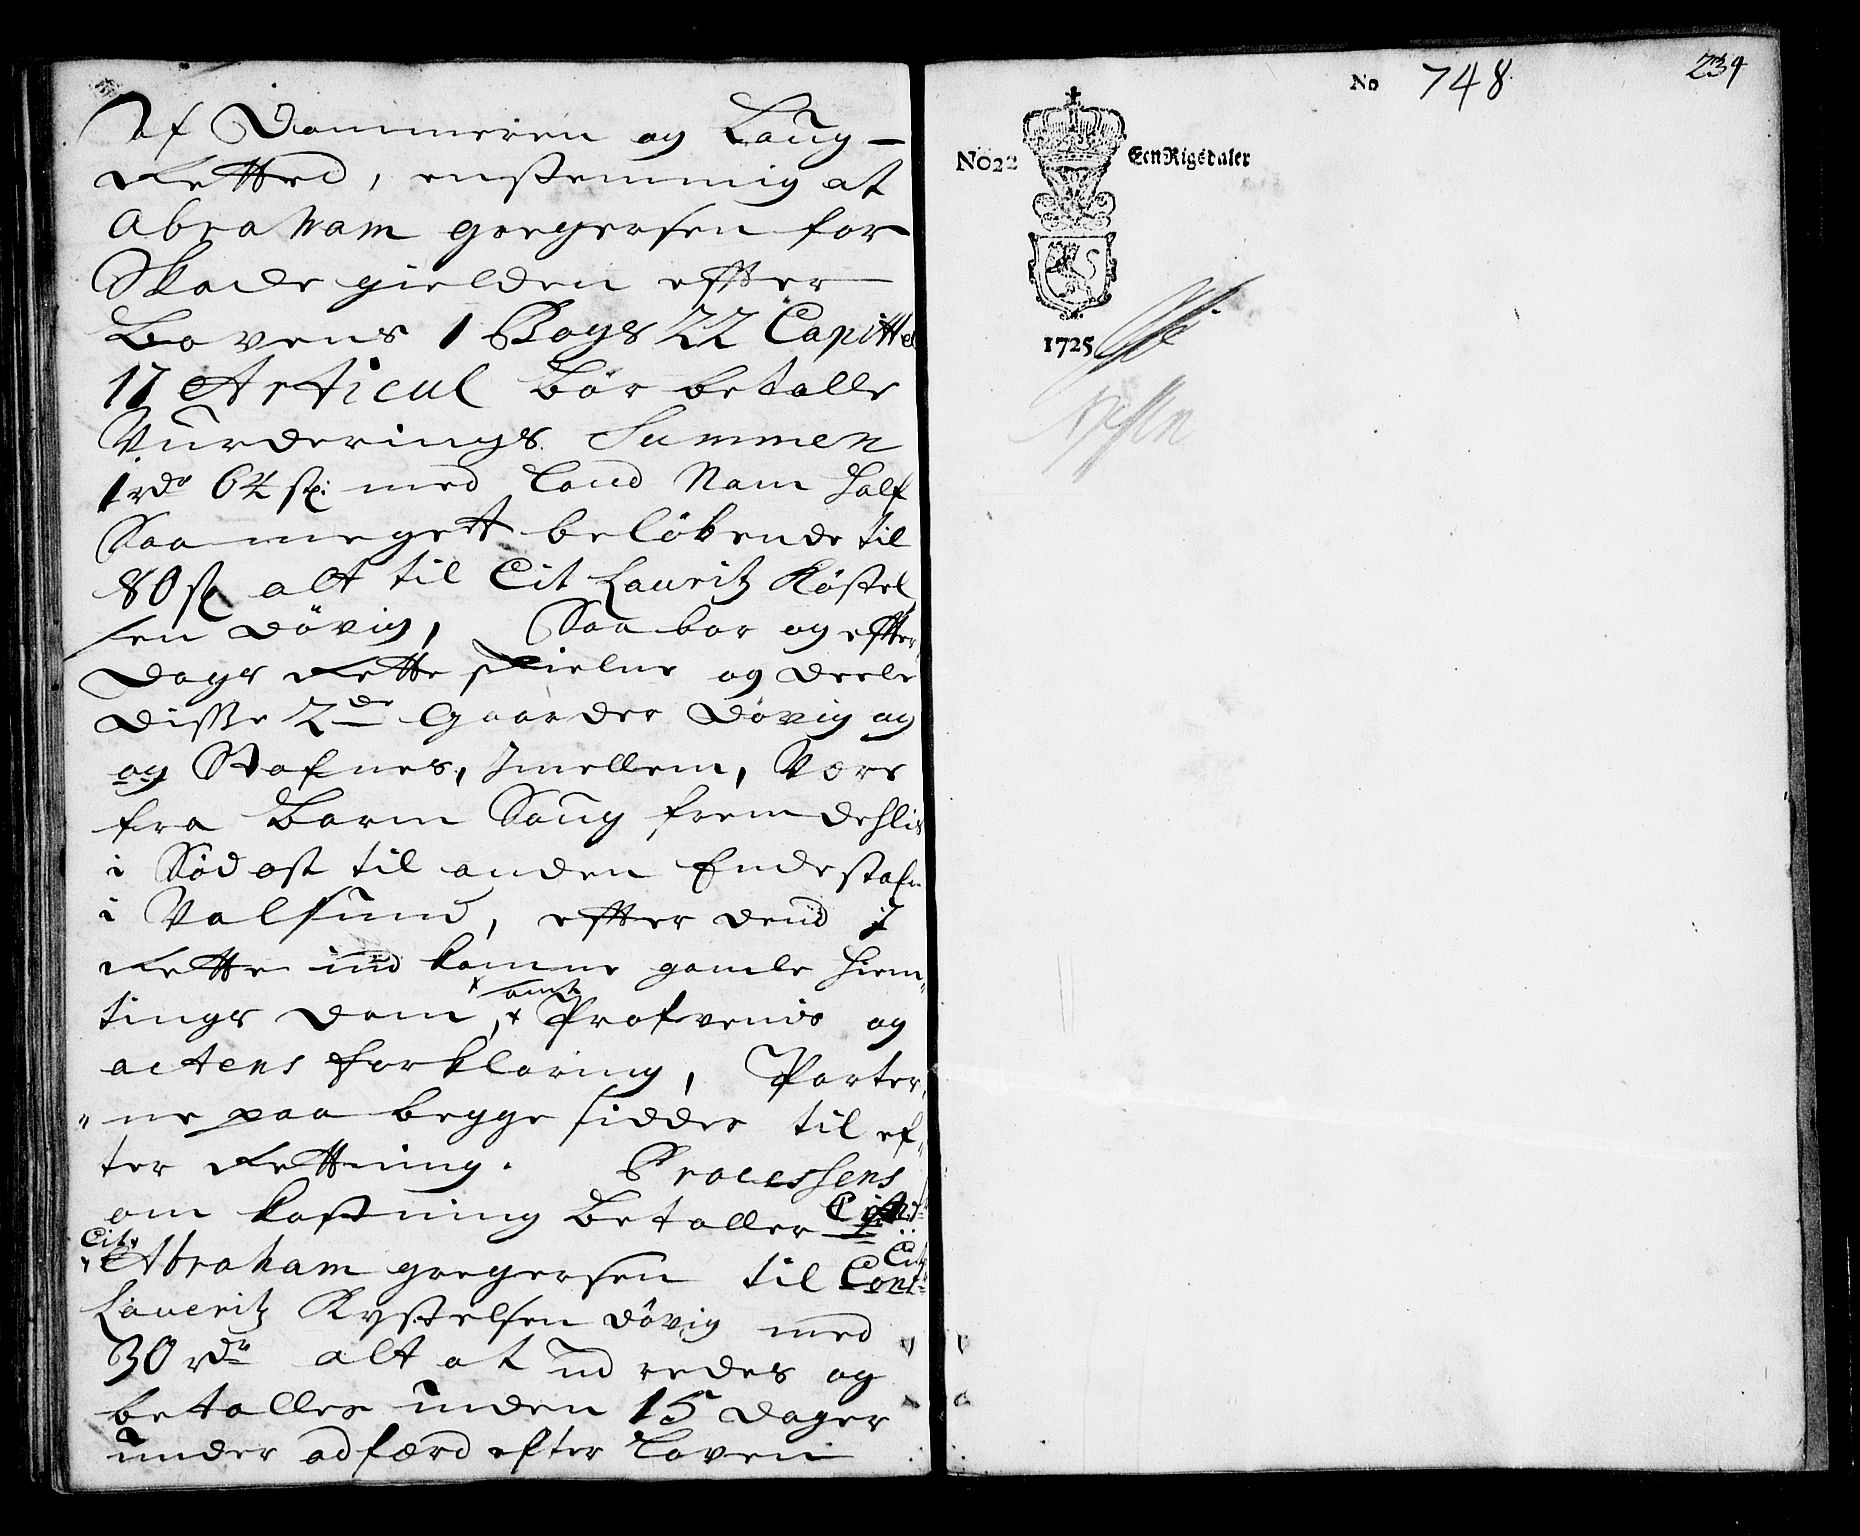 Af Dommeren og Laug-
Retted, enstemmig at
Abraham gregersen for
Skade gielden efter
Lovens 1 Bogs 22 Capittel
17 Articul bör betalle
Vurderings Summen
1 rdr 64 sk: med Land Nam half
Saa megett belöbende til
80 sk alt til Cit Lauritz Köstel
sen Dövig, Saa bör og efter
Dags Rette skielne og deele
disse 2de Gaarder Dövig og
og Stafnes, Imellem, Være
fra Barm Saug frem dehlis
i Södost til anden Endestafn
i Valsund, efter dend I
Rette ind komne gamle Hiem
tings dom, samt Profvenis og
actens forklaring, Parter
ne paa begge sidder til ef
ter Rettning. Processens
om kostning betaller
Cit
Cit
Abraham gregersen til Cont
Laueritz Kystelsen Dövig med
30 rdr alt at ud redes og
betalles inden 15 dager
under adfærd efter Loven
No 748
239
No 22
Een Rigsdaler
1725